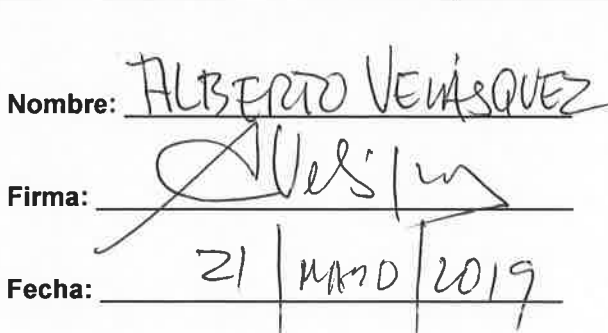 Nombre: ALBERTO VELÁSQUEZ
Firma: AVelsq
Fecha: 21 | MAYO | 2019